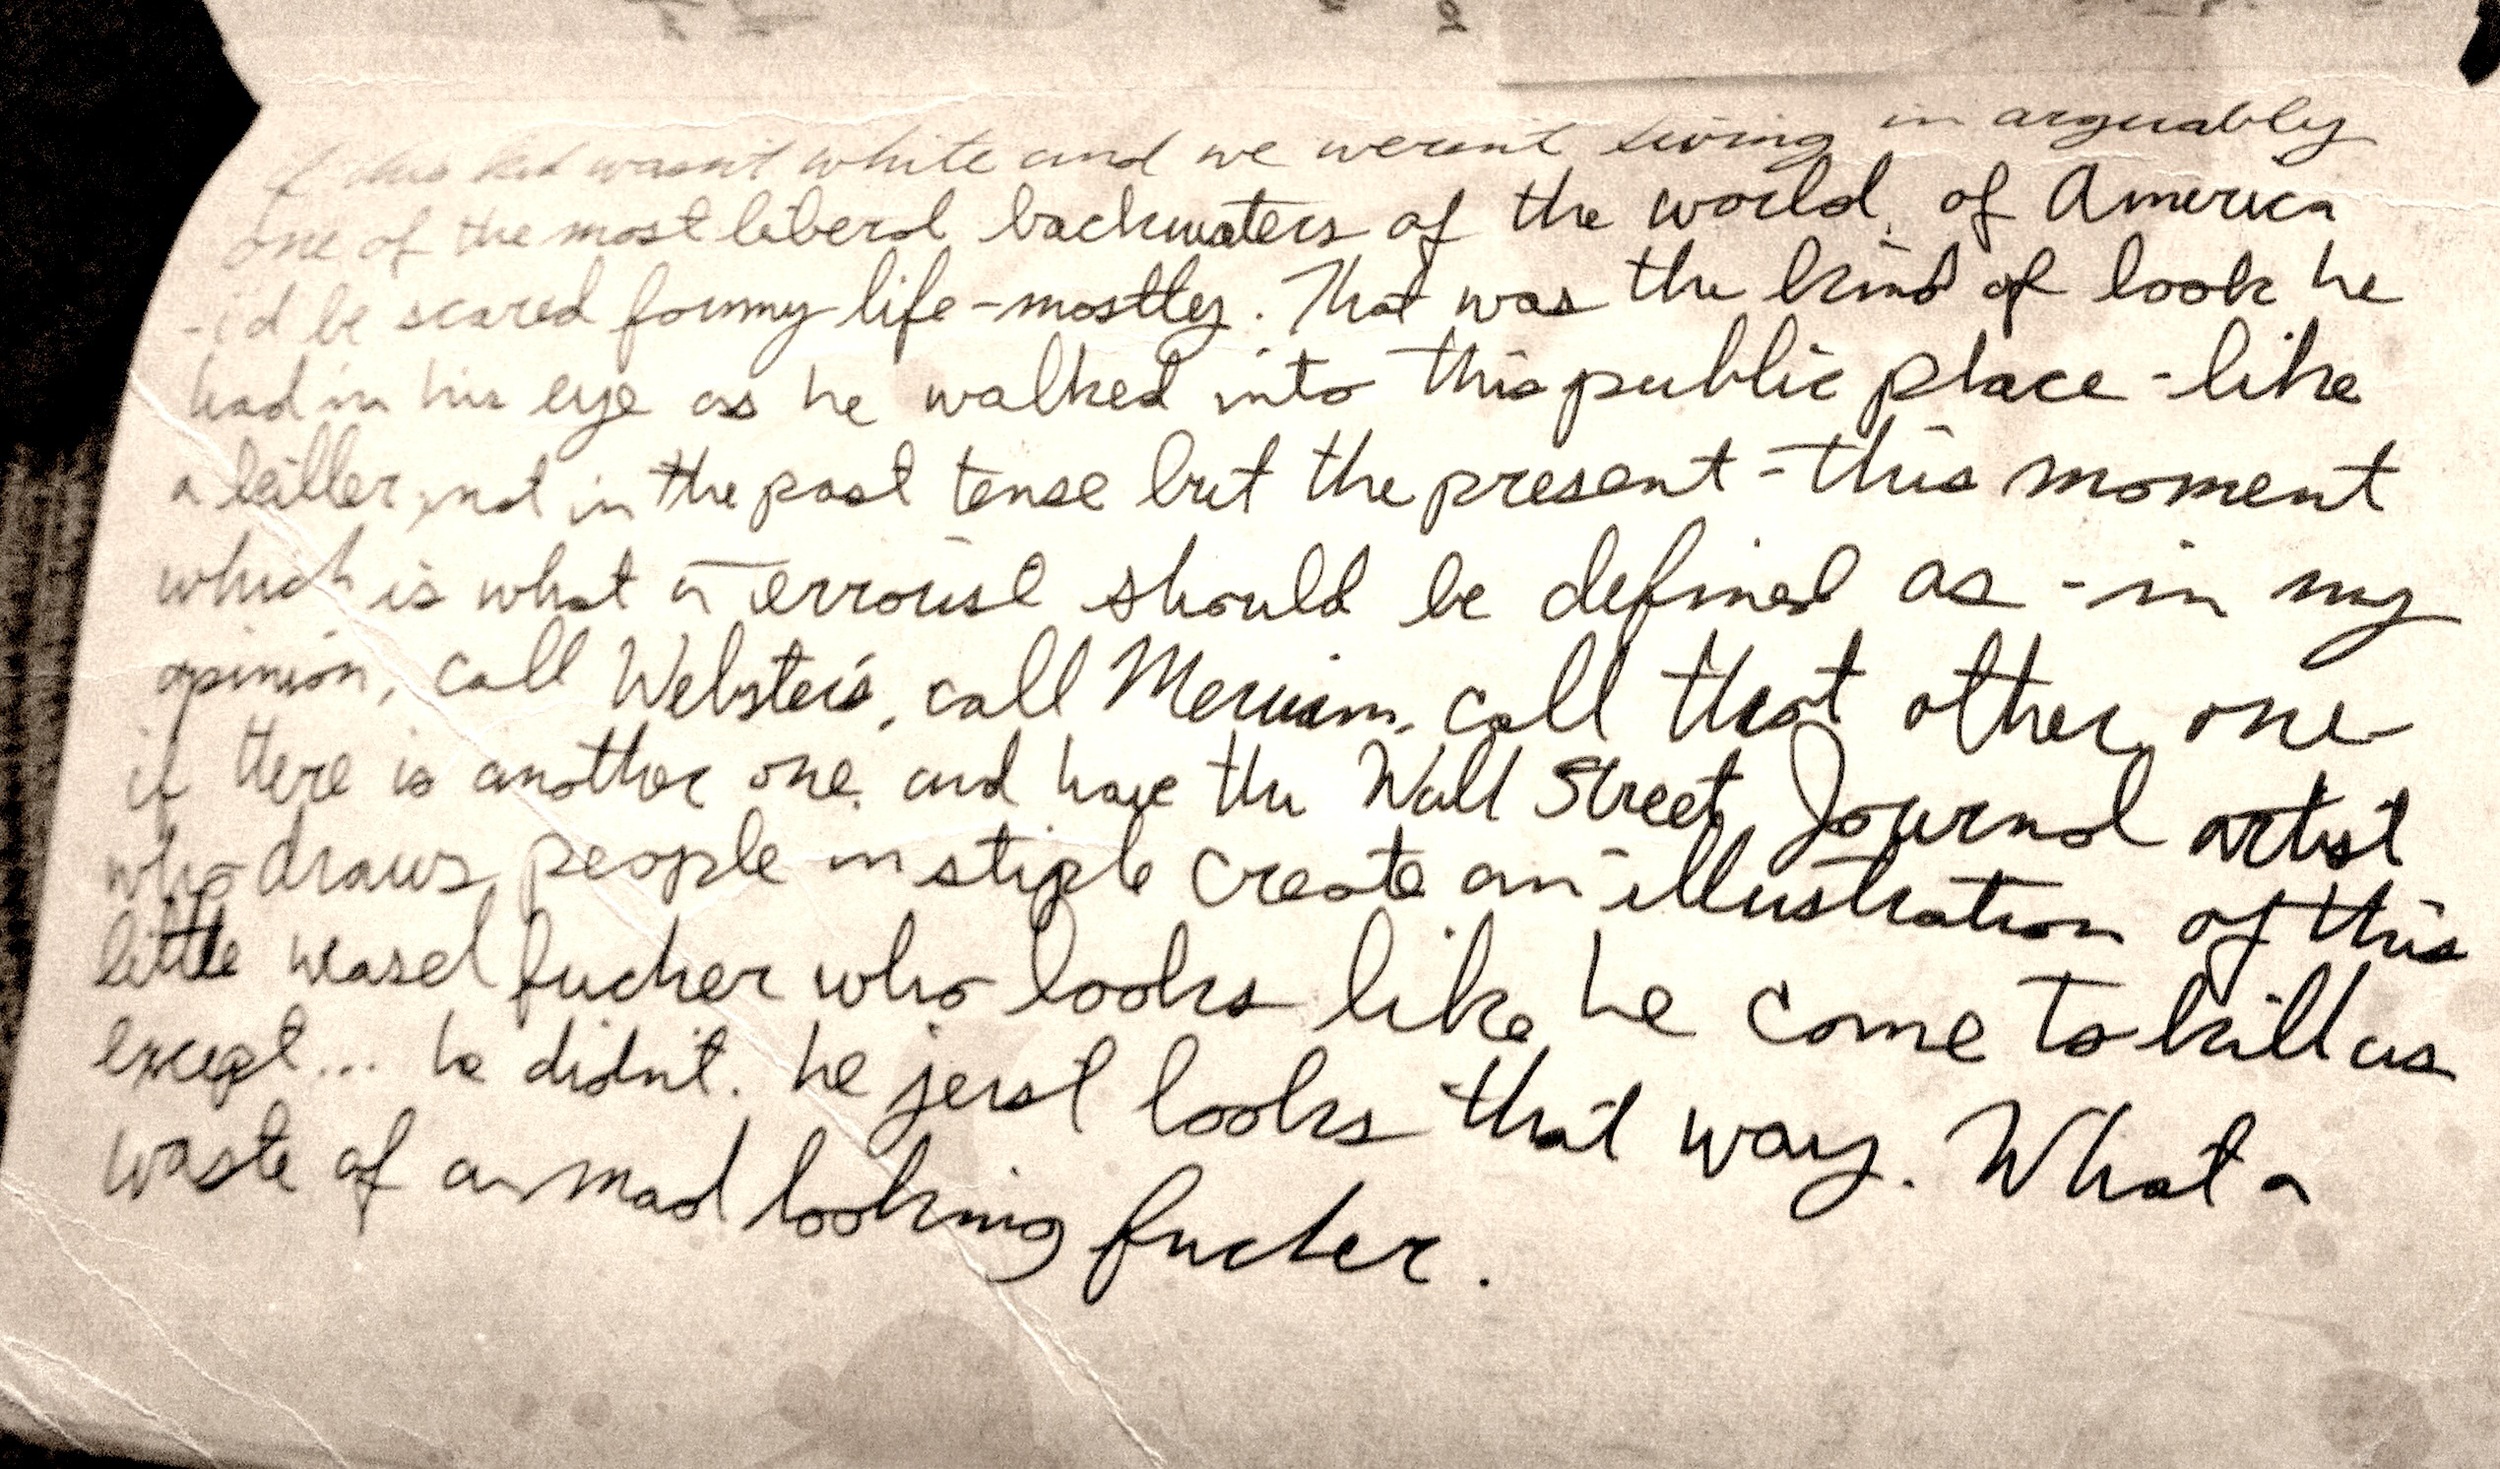 if this kid wasn't white and we weren't living in arguably
one of the most liberal backwaters of the world, of America
-i'd be scared for my life-mostly. That was the kind of look he
had in his eye as he walked into this public place-like
a killer, not in the past tense but the present-this moment
which is what a terrorist should be defined as-in my
opinion, call Webster's, call Merriam, call that other one
if there is another one, and have the Wall Street Journal artist
who draws people in stiple create an illustration of this
little weasel fucker who looks like he come to kill us
except... he didn't. he just looks that way. What a
waste of a mad looking fucker.